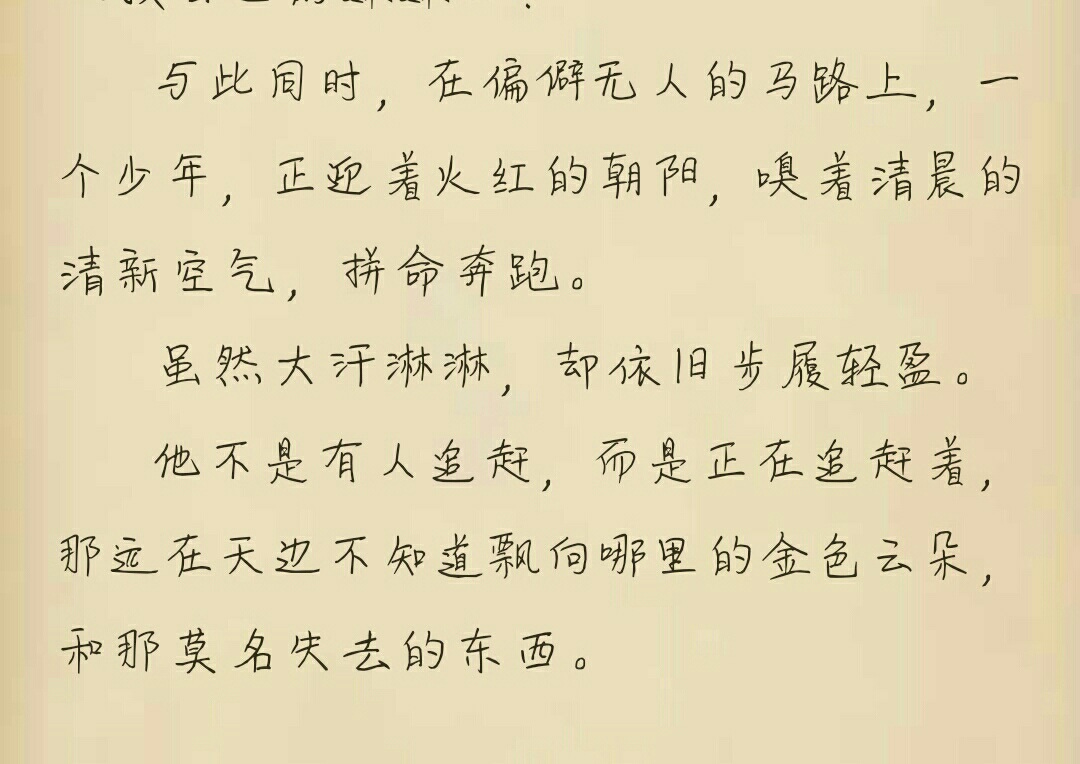 与此同时，在偏僻无人的马路上，一
个少年，正迎着火红的朝阳，嗅着清晨的
清新空气，拼命奔跑。
虽然大汗淋淋，却依旧步履轻盈。
他不是有人追赶，而是正在追赶着，
那远在天边不知道飘向哪里的金色云朵，
和那莫名失去的东西。